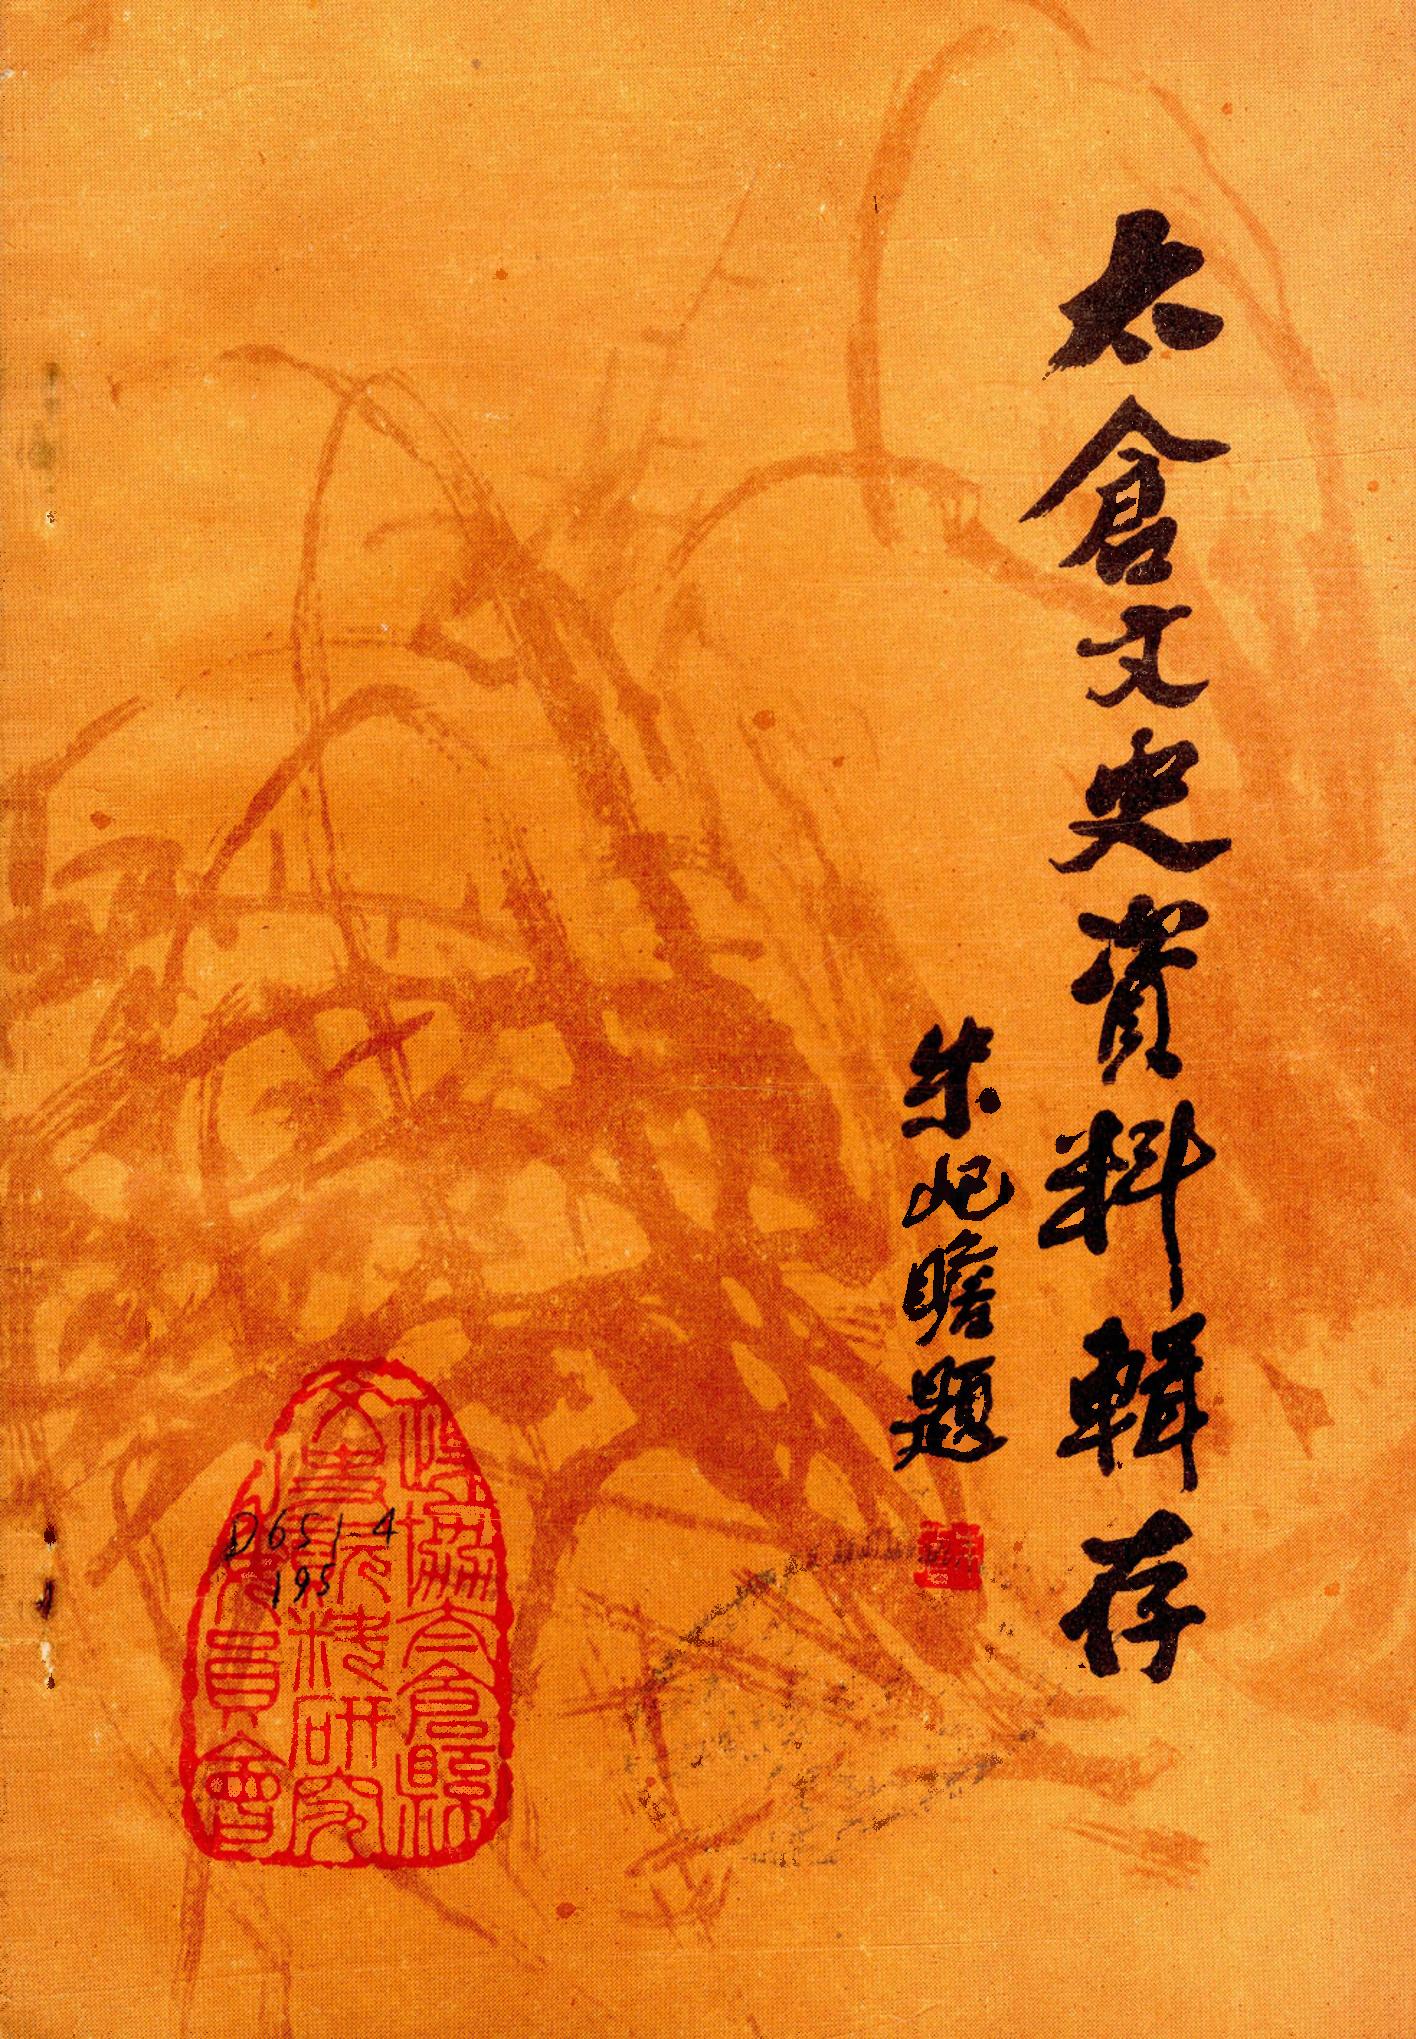 太倉文史資料輯存
朱屺瞻題
政協太倉縣
文史資料研究
委員會
D651-4
195